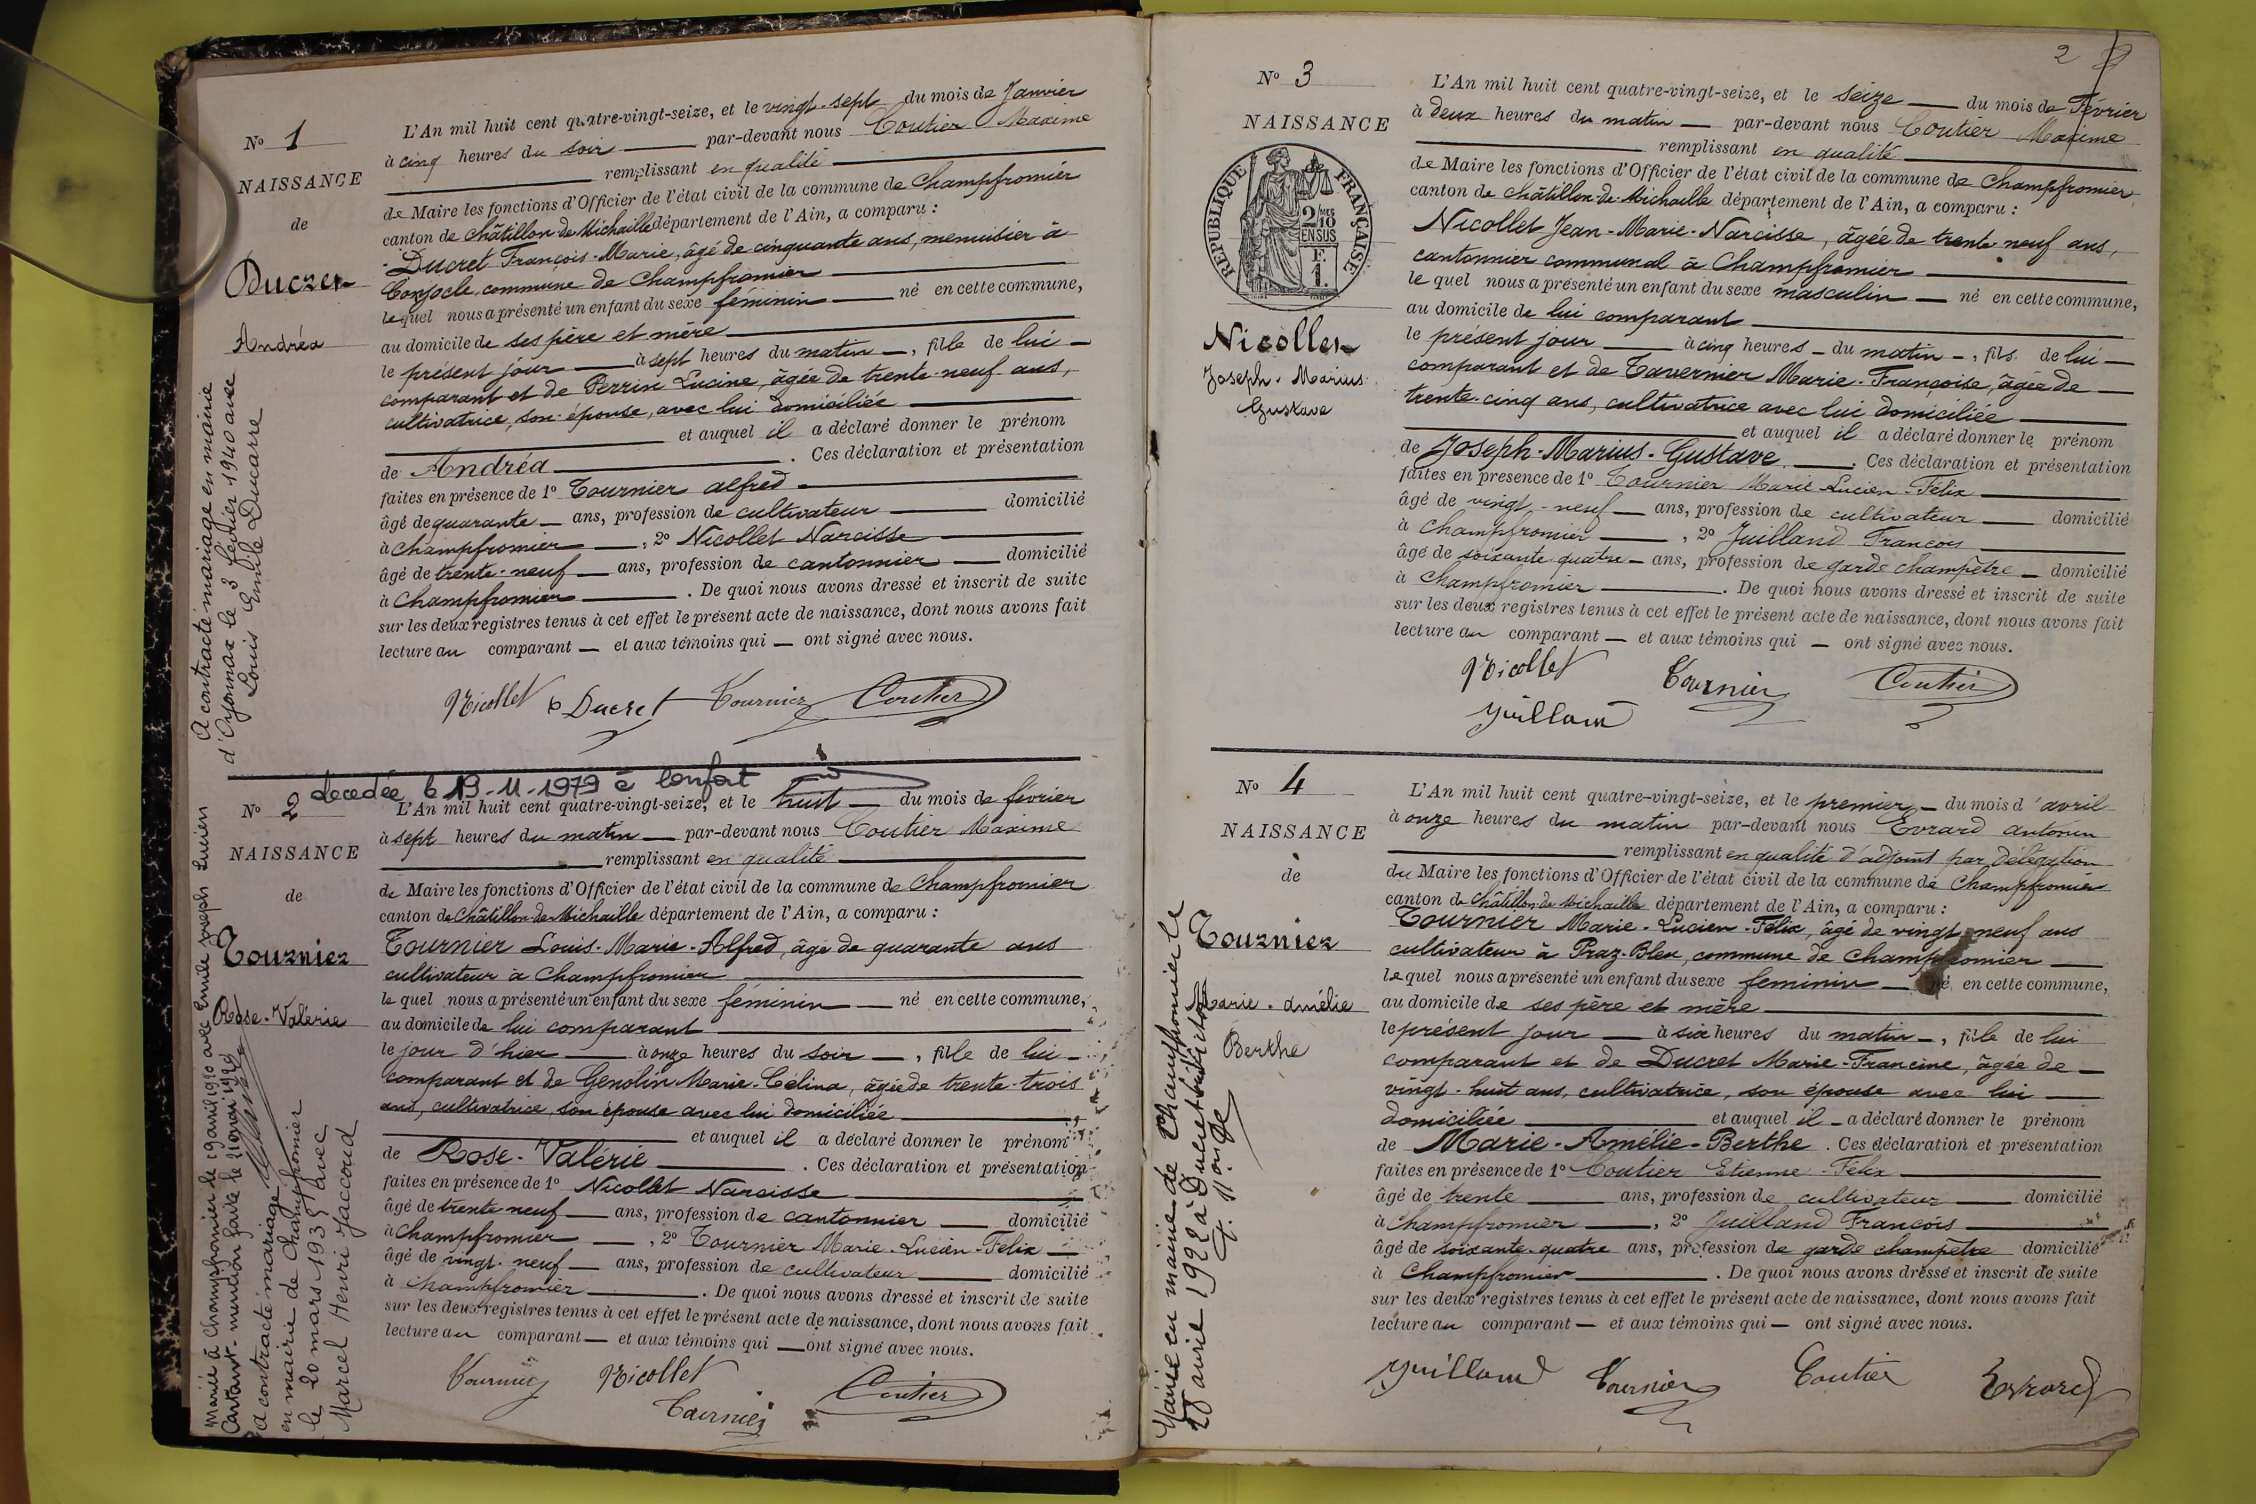 N° 1
NAISSANCE
de
Ducret
Andréa
A contracté mariage en mairie
d'Oyonnax le 3 février 1940 avec
Louis Emile Ducarre
L'An mil huit cent quatre-vingt-seize, et le vingt-sept du mois de Janvier
à cinq heures du soir par-devant nous Coutier Maxime
remplissant en qualité
de Maire les fonctions d'Officier de l'état civil de la commune de Champfromier
canton de Châtillon-de-Michaille département de l'Ain, a comparu :
Ducret François-Marie, âgé de cinquante ans, menuisier à
commune de Champfromier
lequel nous a présenté un enfant du sexe féminin né en cette commune,
au domicile de ses père et mère
le présent jour à sept heures du matin, fille de lui
comparant et de Perrin Lucine, âgée de trente-neuf ans,
cultivatrice, son épouse, avec lui domiciliée
et auquel il a déclaré donner le prénom
de Andréa. Ces déclaration et présentation
faites en présence de 1° Tournier alfred
âgé de quarante ans, profession de cultivateur domicilié
à Champfromier, 2° Nicollet Narcisse
âgé de trente-neuf ans, profession de cantonnier domicilié
à Champfromier. De quoi nous avons dressé et inscrit de suite
sur les deux registres tenus à cet effet le présent acte de naissance, dont nous avons fait
lecture au comparant et aux témoins qui ont signé avec nous.
Nicollet Ducret Tournier Coutier
décédée le 19-11-1979 à Confort
N° 2
NAISSANCE
de
Tournier
Rose-Valérie
mariée à Champfromier le 19 avril 1910 avec Emile Joseph Lucien
mention faite le 21 mai 1910
a contracté mariage
en mairie de Champfromier
le 20 mars 1935 avec
Marcel Henri Jaccoud
L'An mil huit cent quatre-vingt-seize, et le huit du mois de février
à sept heures du matin par-devant nous Coutier Maxime
remplissant en qualité
de Maire les fonctions d'Officier de l'état civil de la commune de Champfromier
canton de Châtillon-de-Michaille département de l'Ain, a comparu :
Tournier Louis-Marie-Alfred, âgé de quarante ans
cultivateur à Champfromier
lequel nous a présenté un enfant du sexe féminin né en cette commune,
au domicile de lui comparant
le jour d'hier à onze heures du soir, fille de lui
comparant et de Genolin Marie-Célina, âgée de trente-trois
ans, cultivatrice, son épouse avec lui domiciliée
et auquel il a déclaré donner le prénom
de Rose-Valérie. Ces déclaration et présentation
faites en présence de 1° Nicollet Narcisse
âgé de trente-neuf ans, profession de cantonnier domicilié
à Champfromier, 2° Tournier Marie-Lucien-Félix
âgé de vingt-neuf ans, profession de cultivateur domicilié
à Champfromier. De quoi nous avons dressé et inscrit de suite
sur les deux registres tenus à cet effet le présent acte de naissance, dont nous avons fait
lecture au comparant et aux témoins qui ont signé avec nous.
Tournier Nicollet Coutier
Tournier
2
N° 3
NAISSANCE
RÉPUBLIQUE FRANÇAISE
2/10 MES
EN SUS
F.
1.
Nicollet
Joseph-Marius
Gustave
L'An mil huit cent quatre-vingt-seize, et le seize du mois de Février
à deux heures du matin par-devant nous Coutier Maxime
remplissant en qualité
de Maire les fonctions d'Officier de l'état civil de la commune de Champfromier
canton de Châtillon-de-Michaille département de l'Ain, a comparu :
Nicollet Jean-Marie-Narcisse, âgée de trente neuf ans,
cantonnier communal à Champfromier
lequel nous a présenté un enfant du sexe masculin né en cette commune,
au domicile de lui comparant
le présent jour à cinq heures du matin, fils de lui
comparant et de Tavernier Marie-Françoise, âgée de
trente-cinq ans, cultivatrice avec lui domiciliée
et auquel il a déclaré donner le prénom
de Joseph-Marius-Gustave. Ces déclaration et présentation
faites en présence de 1° Tournier Marie Lucien-Félix
âgé de vingt-neuf ans, profession de cultivateur domicilié
à Champfromier, 2° Juilland François
âgé de soixante-quatre ans, profession de garde champêtre domicilié
à Champfromier. De quoi nous avons dressé et inscrit de suite
sur les deux registres tenus à cet effet le présent acte de naissance, dont nous avons fait
lecture au comparant et aux témoins qui ont signé avec nous.
Nicollet Tournier Coutier
Juilland
N° 4
NAISSANCE
de
Tournier
Marie-Amélie
Berthe
Mariée en mairie de Champfromier le
avril 1922 à Ducret
L'An mil huit cent quatre-vingt-seize, et le premier du mois d'avril
à onze heures du matin par-devant nous Evrard antonin
remplissant en qualité d'adjoint par délégation
du Maire les fonctions d'Officier de l'état civil de la commune de Champfromier
canton de Châtillon-de-Michaille département de l'Ain, a comparu :
Tournier Marie-Lucien-Félix, âgé de vingt-neuf ans
cultivateur à Praz-Bleu, commune de Champfromier
lequel nous a présenté un enfant du sexe féminin né en cette commune,
au domicile de ses père et mère
le présent jour à six heures du matin, fille de lui
comparant et de Ducret Marie-Francine, âgée de
vingt-huit ans, cultivatrice, son épouse avec lui
domiciliée et auquel il a déclaré donner le prénom
de Marie-Amélie-Berthe. Ces déclaration et présentation
faites en présence de 1° Coutier Etienne-Félix
âgé de trente ans, profession de cultivateur domicilié
à Champfromier, 2° Juilland François
âgé de soixante-quatre ans, profession de garde champêtre domicilié
à Champfromier. De quoi nous avons dressé et inscrit de suite
sur les deux registres tenus à cet effet le présent acte de naissance, dont nous avons fait
lecture au comparant et aux témoins qui ont signé avec nous.
Juilland Tournier Coutier Evrard